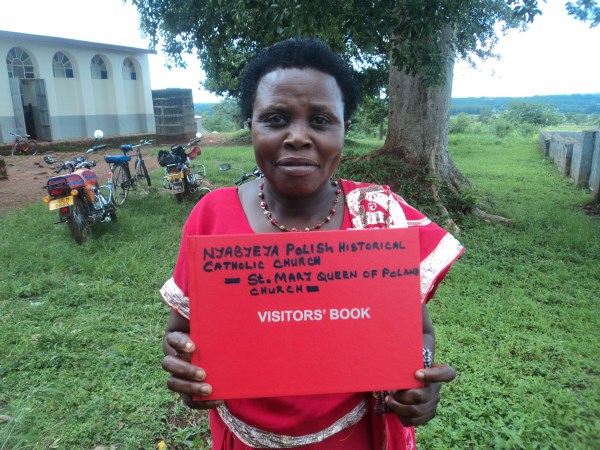 NYABYEYA POLISH HISTORICAL
CATHOLIC CHURCH
— ST. MARY QUEEN OF POLAND
CHURCH —
VISITORS' BOOK